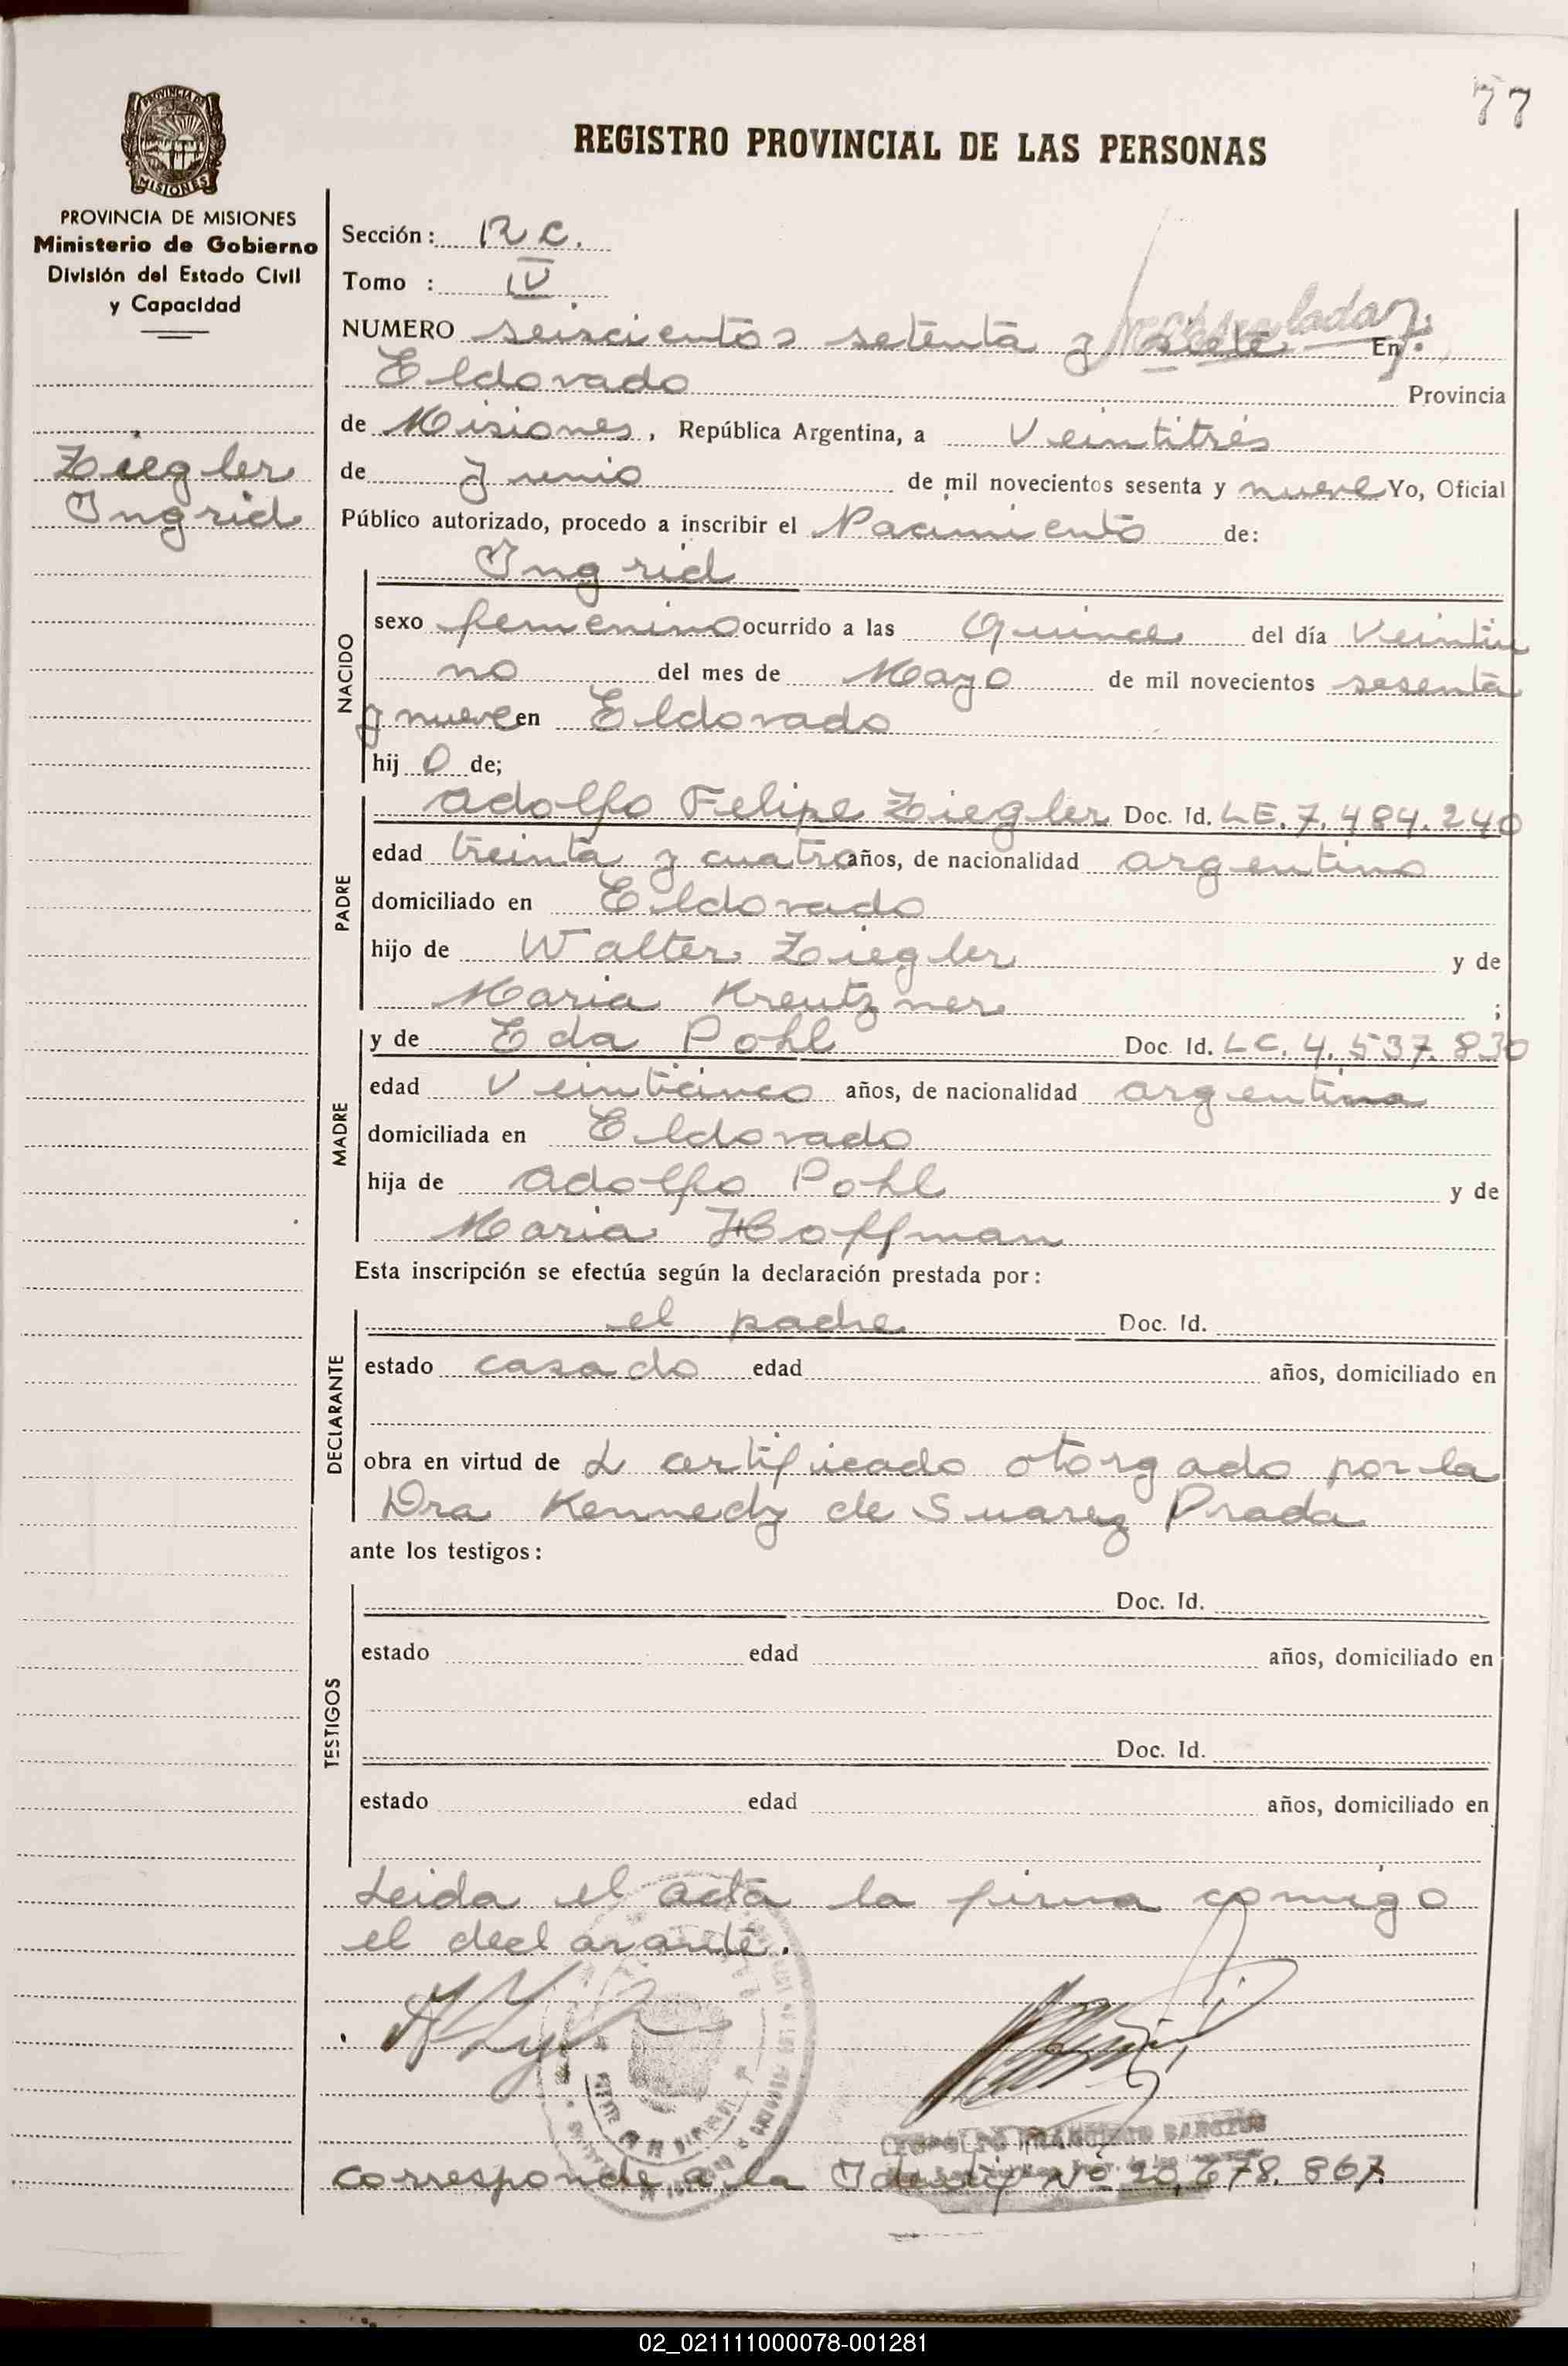 77
REGISTRO PROVINCIAL DE LAS PERSONAS
PROVINCIA DE
MISIONES
PROVINCIA DE MISIONES
Ministerio de Gobierno
División del Estado Civil
y Capacidad
Ziegler
Ingrid
Sección: R C.
Tomo : IV
NUMERO seiscientos setenta y siete En
Eldorado Provincia
de Misiones, República Argentina, a Veintitrés
de Junio de mil novecientos sesenta y nueve Yo, Oficial
Público autorizado, procedo a inscribir el Nacimiento de:
NACIDO
Ingrid
sexo femenino ocurrido a las Quince del día Veintiu
no del mes de Mayo de mil novecientos sesenta
y nueve en Eldorado
hij o de;
PADRE
Adolfo Felipe Ziegler Doc. Id. LE. 7.484.240
edad treinta y cuatro años, de nacionalidad argentino
domiciliado en Eldorado
hijo de Walter Ziegler y de
Maria Kreutzner ;
MADRE
y de Eda Pohl Doc. Id. LC. 4.537.830
edad Veinticinco años, de nacionalidad argentina
domiciliada en Eldorado
hija de Adolfo Pohl y de
Maria Hoffman
Esta inscripción se efectúa según la declaración prestada por:
DECLARANTE
el padre Doc. Id.
estado casado edad años, domiciliado en
obra en virtud de L certificado otorgado por la
Dra Kennedy de Suarez Prada
ante los testigos:
TESTIGOS
Doc. Id.
estado edad años, domiciliado en
Doc. Id.
estado edad años, domiciliado en
Leida el acta la firma comigo
el declarante.
corresponde a la Identif Nº 20,678.867.
02_021111000078-001281